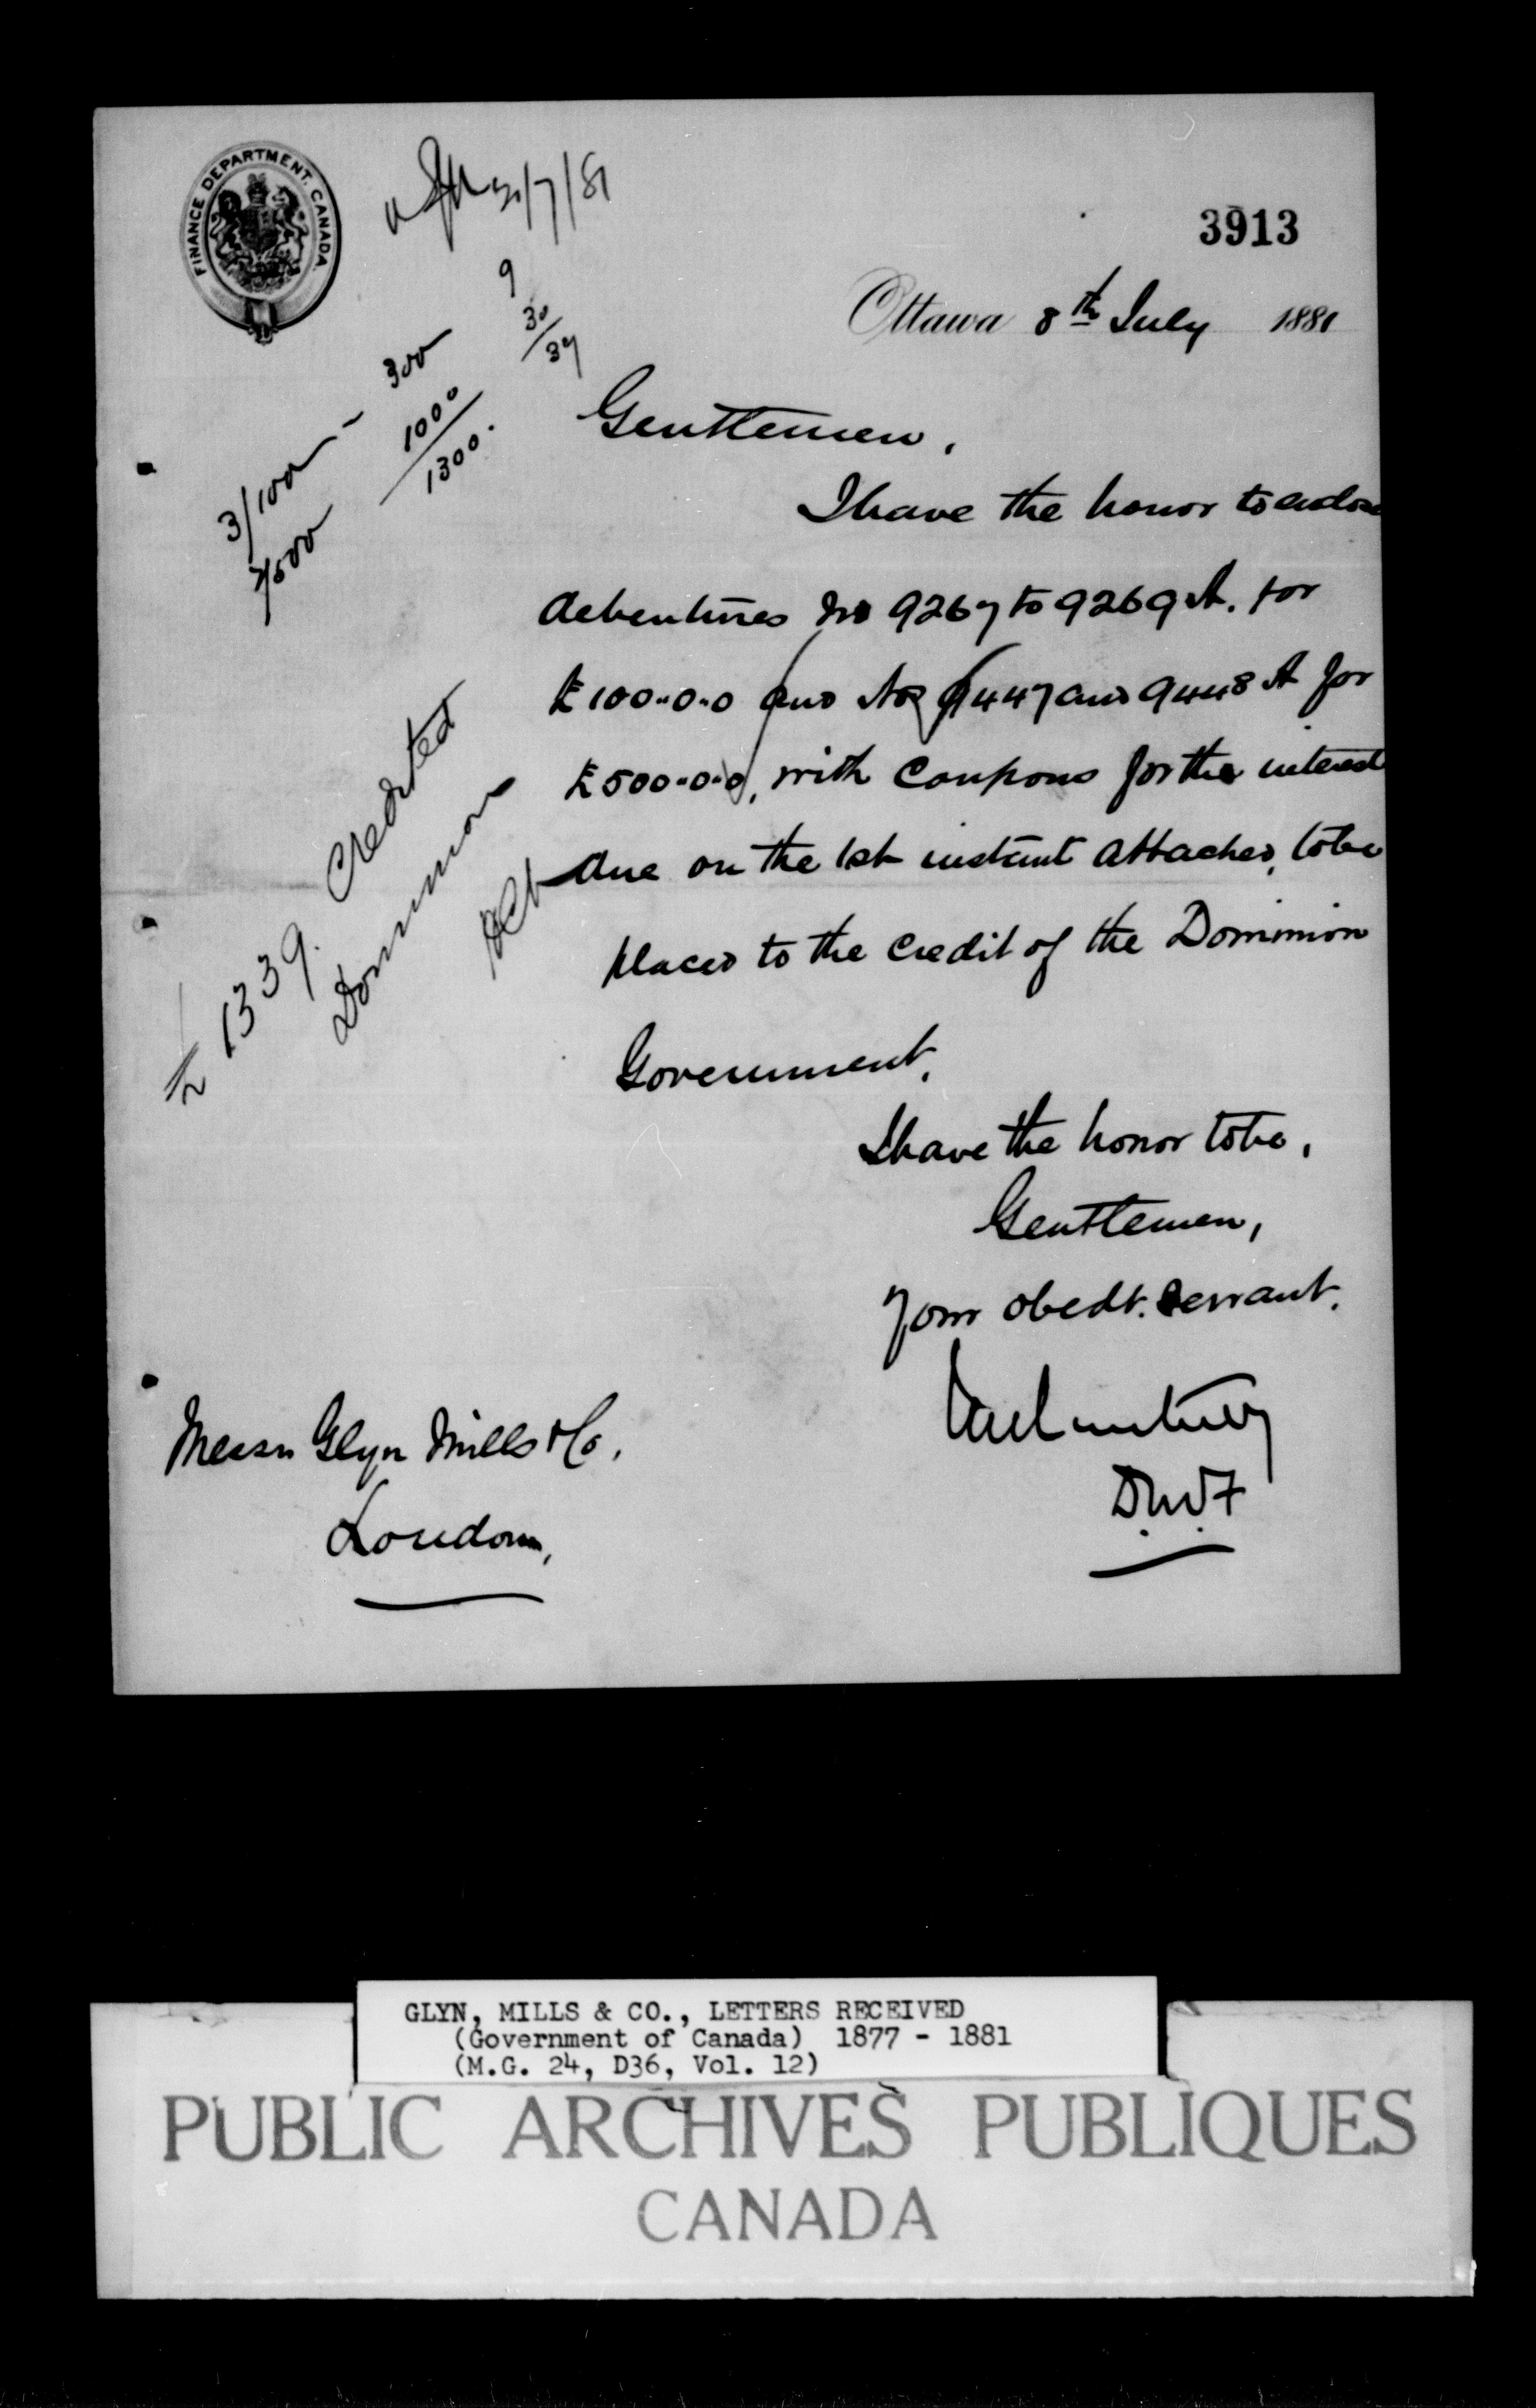 FINANCE DEPARTMENT. CANADA
/7/81
3913
Ottawa 8th July 1881
9
30
39
3/100 - 300
2/500 1000
1300.
Gentlemen,
I have the honor to enclose
debentures No 9267 to 9269 A. for
£100..0..0 and Nos 9447 and 9448 A for
£500..0..0, with Coupons for the interest
due on the 1st instant attached, to be
placed to the credit of the Dominion
Government.
£1339. Credited
Dominion
I have the honor to be,
Gentlemen,
Your obedt. Servant.
D.M.F
Messrs Glyn Mills & Co.
London,
GLYN, MILLS & CO., LETTERS RECEIVED
(Government of Canada) 1877 - 1881
(M.G. 24, D36, Vol. 12)
PUBLIC ARCHIVES PUBLIQUES
CANADA